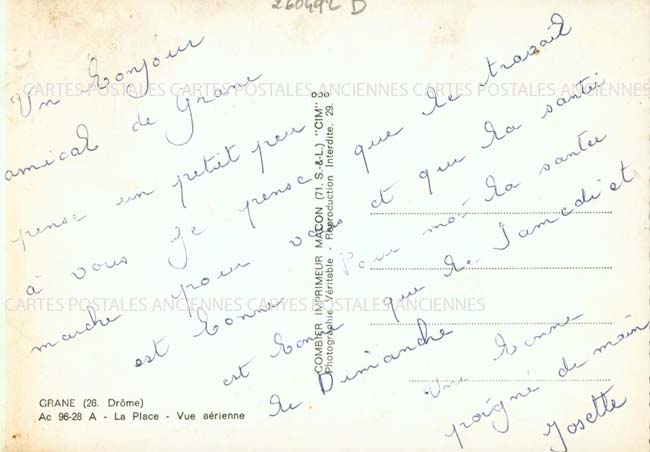 260492 D
Un bonjour
amical de Grane
pense un petit peu
à vous je pense que le travail
marche pour vous et que la santé
est bonne Pour moi la santée
est bonne que le Samedi et
le Dimanche
Une bonne
poigné de main
Josette
CARTES POSTALES ANCIENNES CARTES POSTALES ANCIENNES
CARTES POSTALES ANCIENNES CARTES POSTALES ANCIENNES
COMBIER IMPRIMEUR MACON (71. S.-&-L.) "CIM"
Photographie Véritable - Reproduction Interdite. 29.
GRANE (26. Drôme)
Ac 96-28 A - La Place - Vue aérienne